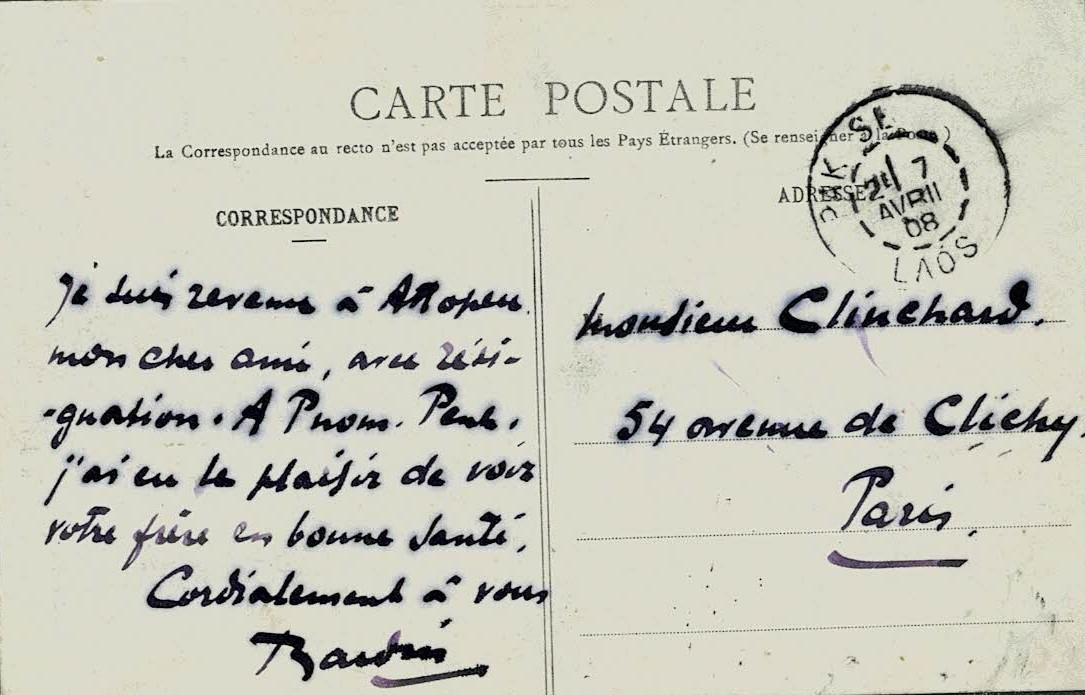 CARTE POSTALE
La Correspondance au recto n'est pas acceptée par tous les Pays Étrangers. (Se renseigner à la Poste)
CORRESPONDANCE
ADRESSE
PAK SE
7
AVRIL
08
LAOS
Je suis revenu à Attopeu
mon cher ami, avec rési-
-gnation. A Pnom. Penh.
j'ai eu le plaisir de voir
votre frère en bonne santé,
Cordialement à vous
Monsieur Clinchard.
54 avenue de Clichy.
Paris.